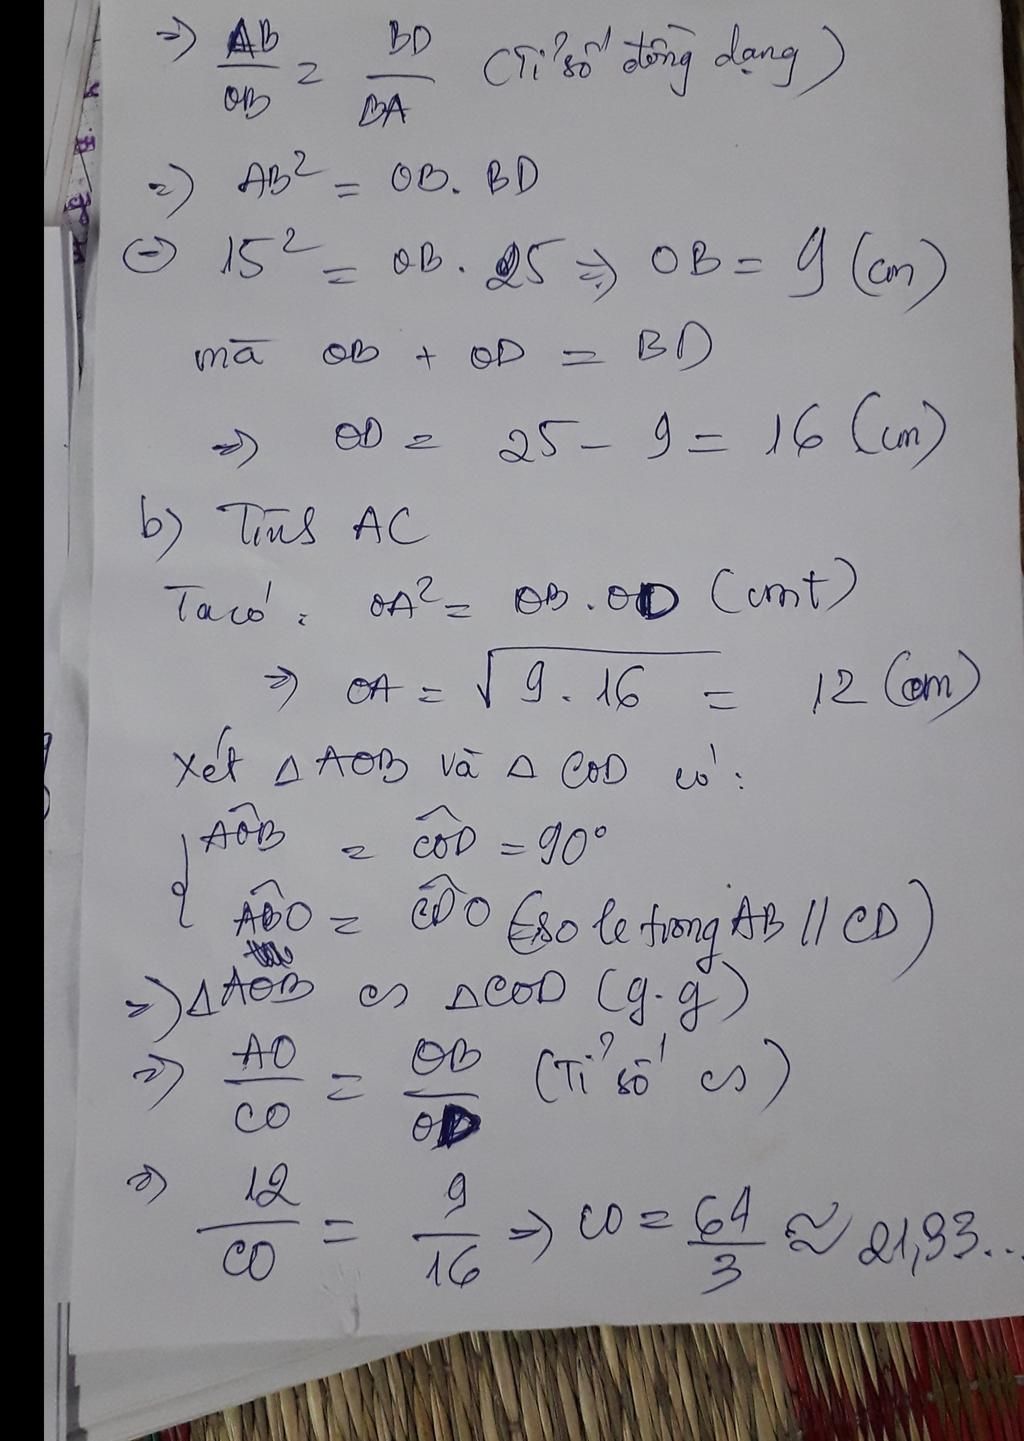 => AB/OB = BD/BA (Tỉ số đồng dạng)
=> AB² = OB. BD
(=) 15² = OB. 25 => OB = 9 (cm)
mà OB + OD = BD
=> OD = 25 - 9 = 16 (cm)
b) Tính AC
Ta có: OA² = OB. OD (cmt)
=> OA = √9.16 = 12 (cm)
Xét △AOB và △COD có:
{ AÔB = CÔD = 90°
ABO = CDO (so le trong AB // CD)
=> △AOB ∽ △COD (g.g)
=> AO/CO = OB/OD (Tỉ số ∽)
=> 12/CO = 9/16 => CO = 64/3 ≈ 21,33...